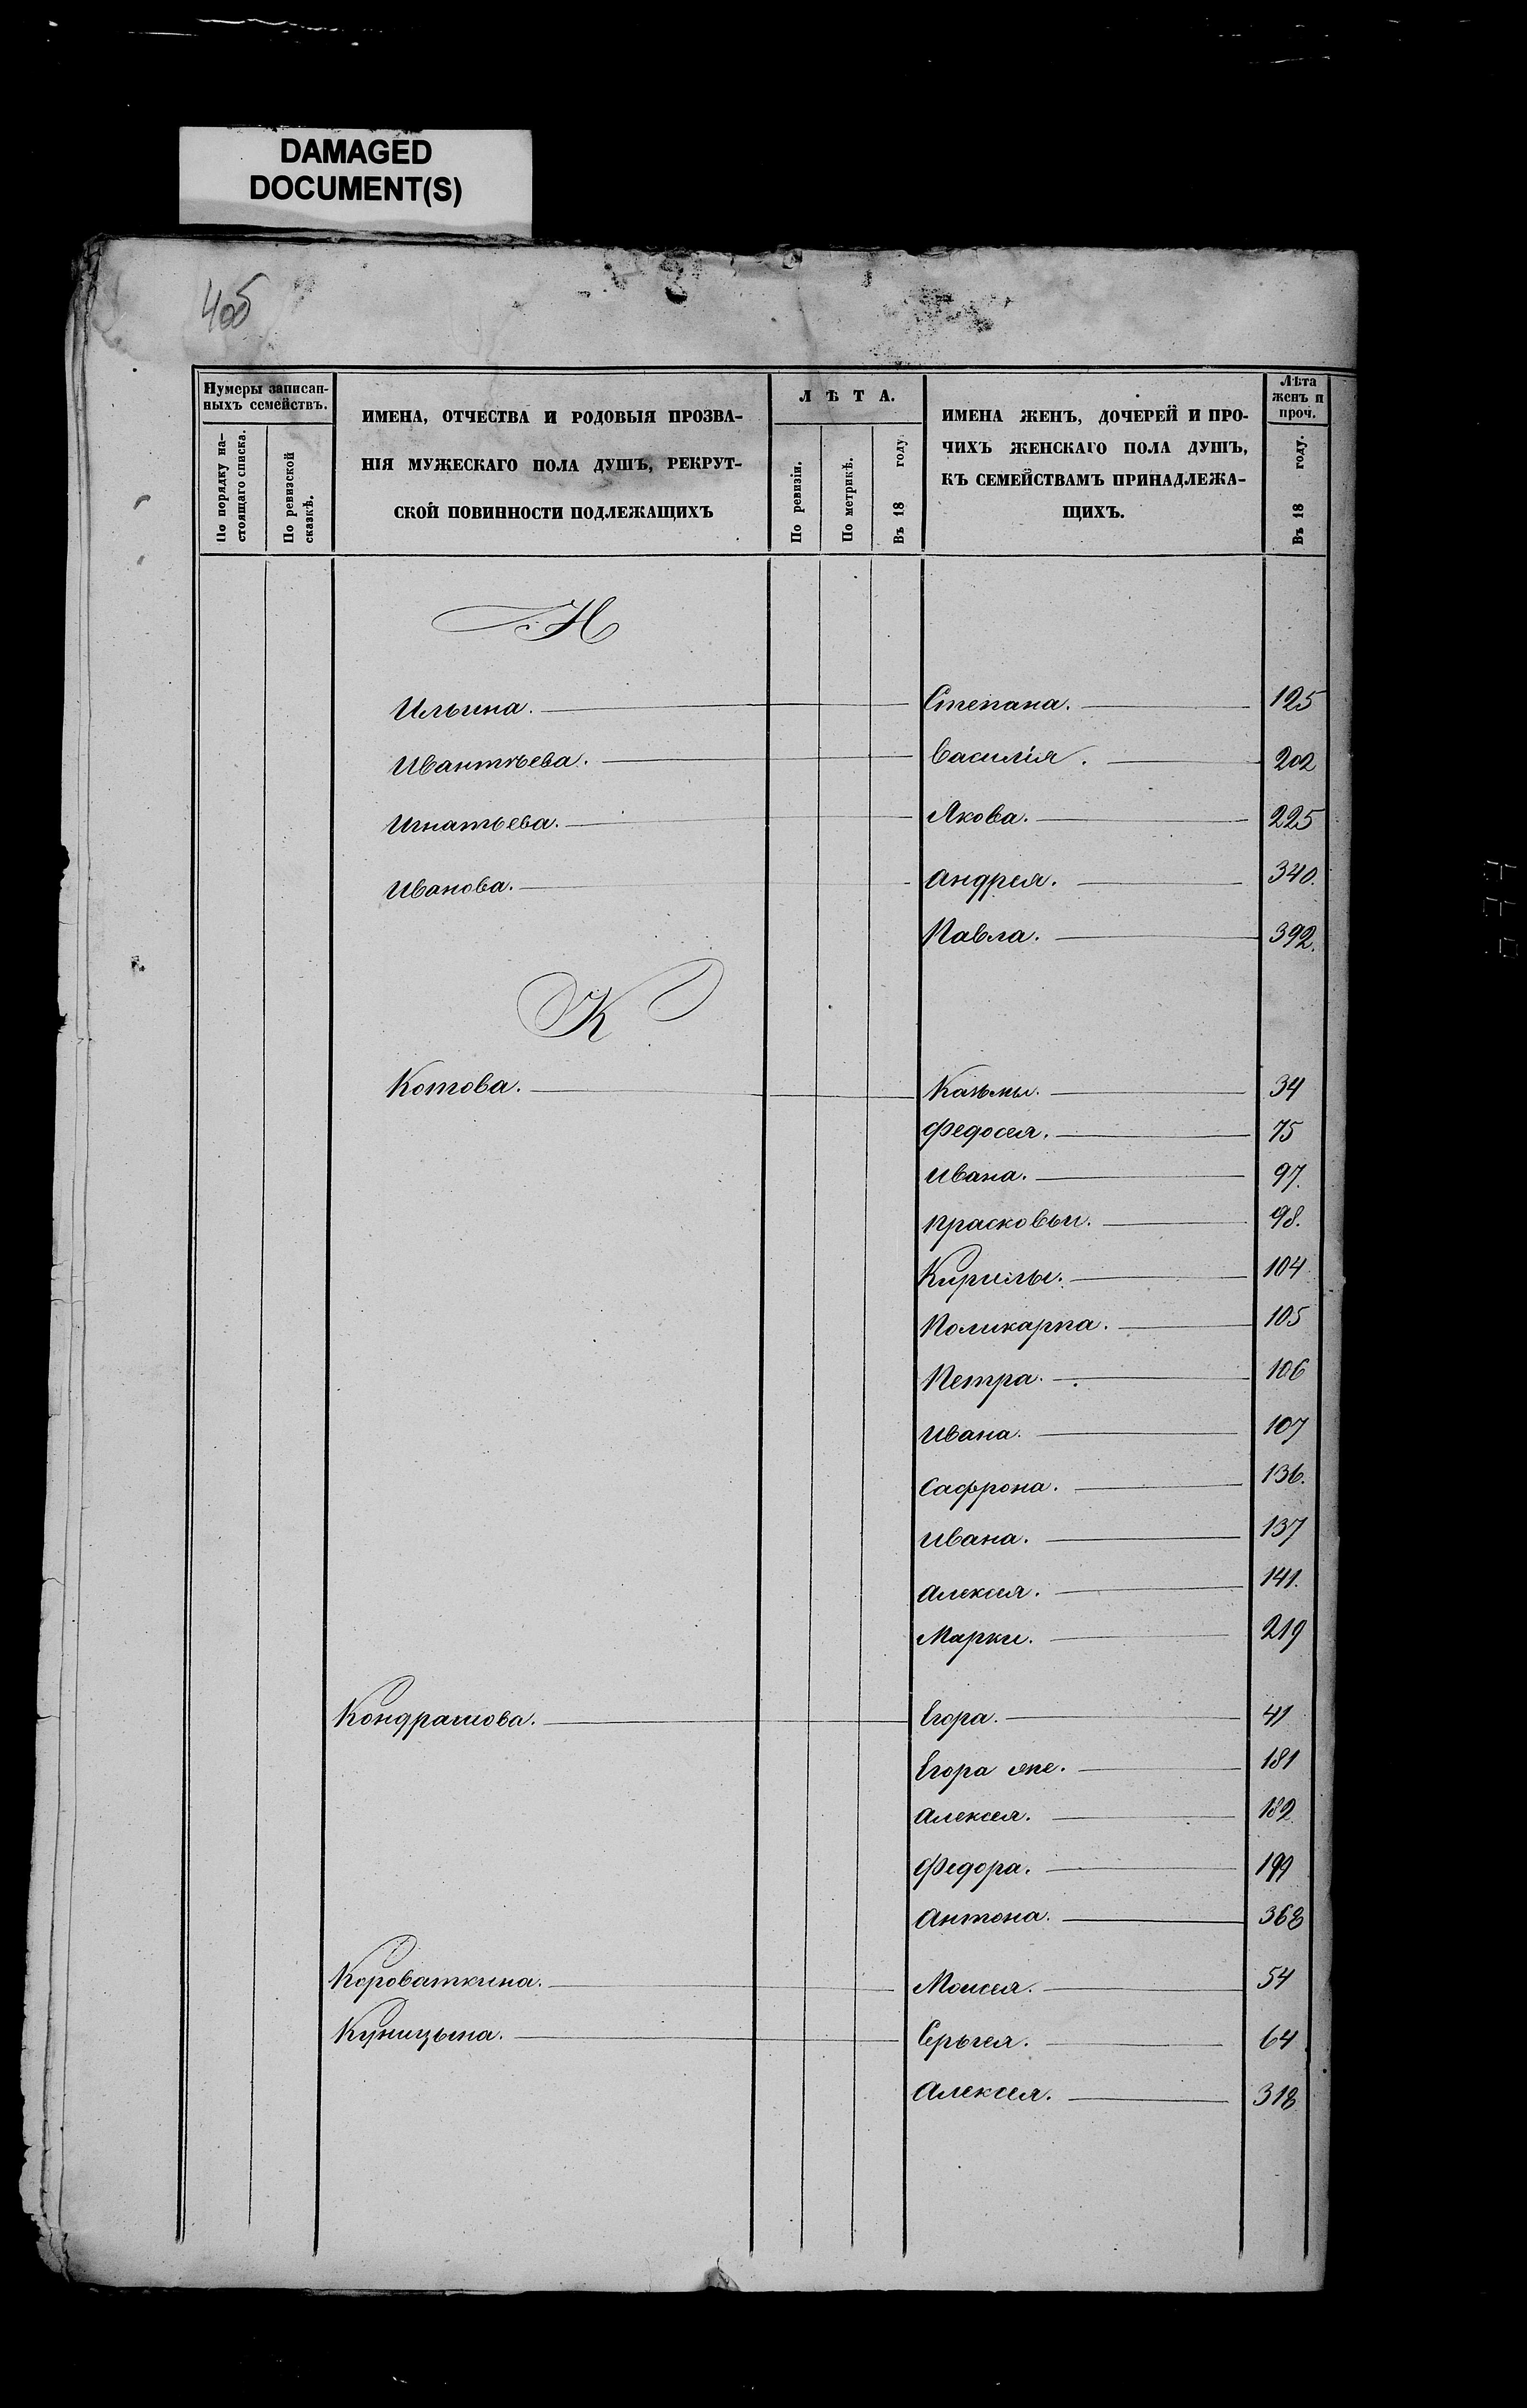 DAMAGED
DOCUMENT(S)
405
Нумеры записан-
ныхъ семействъ.
По порядку на-
стоящаго списка.
По ревизской
сказкѣ.
ИМЕНА, ОТЧЕСТВА И РОДОВЫЯ ПРОЗВА-
НІЯ МУЖЕСКАГО ПОЛА ДУШЪ, РЕКРУТ-
СКОЙ ПОВИННОСТИ ПОДЛЕЖАЩИХЪ
ЛѢТА.
По ревизіи.
По метрикѣ.
Въ 18 году.
ИМЕНА ЖЕНЪ, ДОЧЕРЕЙ И ПРО-
ЧИХЪ ЖЕНСКАГО ПОЛА ДУШЪ,
КЪ СЕМЕЙСТВАМЪ ПРИНАДЛЕЖА-
ЩИХЪ.
Лѣта
женъ и
проч.
Въ 18 году.
И
Ильина. Степана. 125
Ивантѣева. Василія. 202
Игнатьева. Якова. 225
Иванова. Андрея. 340.
Павла. 392.
К
Котова. Казьмы. 34
Федосея. 75
Ивана. 97.
Прасковьи. 98.
Кирилы. 104
Поликарпа. 105
Петра. 106
Ивана. 107
Сафрона. 136.
Ивана. 137
Алексея. 141.
Марки. 219
Кондрашова. Егора. 41
Егора же. 181
Алексея. 182
Федора. 199
Антона. 368
Короваткина. Моисея. 54
Куницына. Серьгея. 64
Алексея. 318